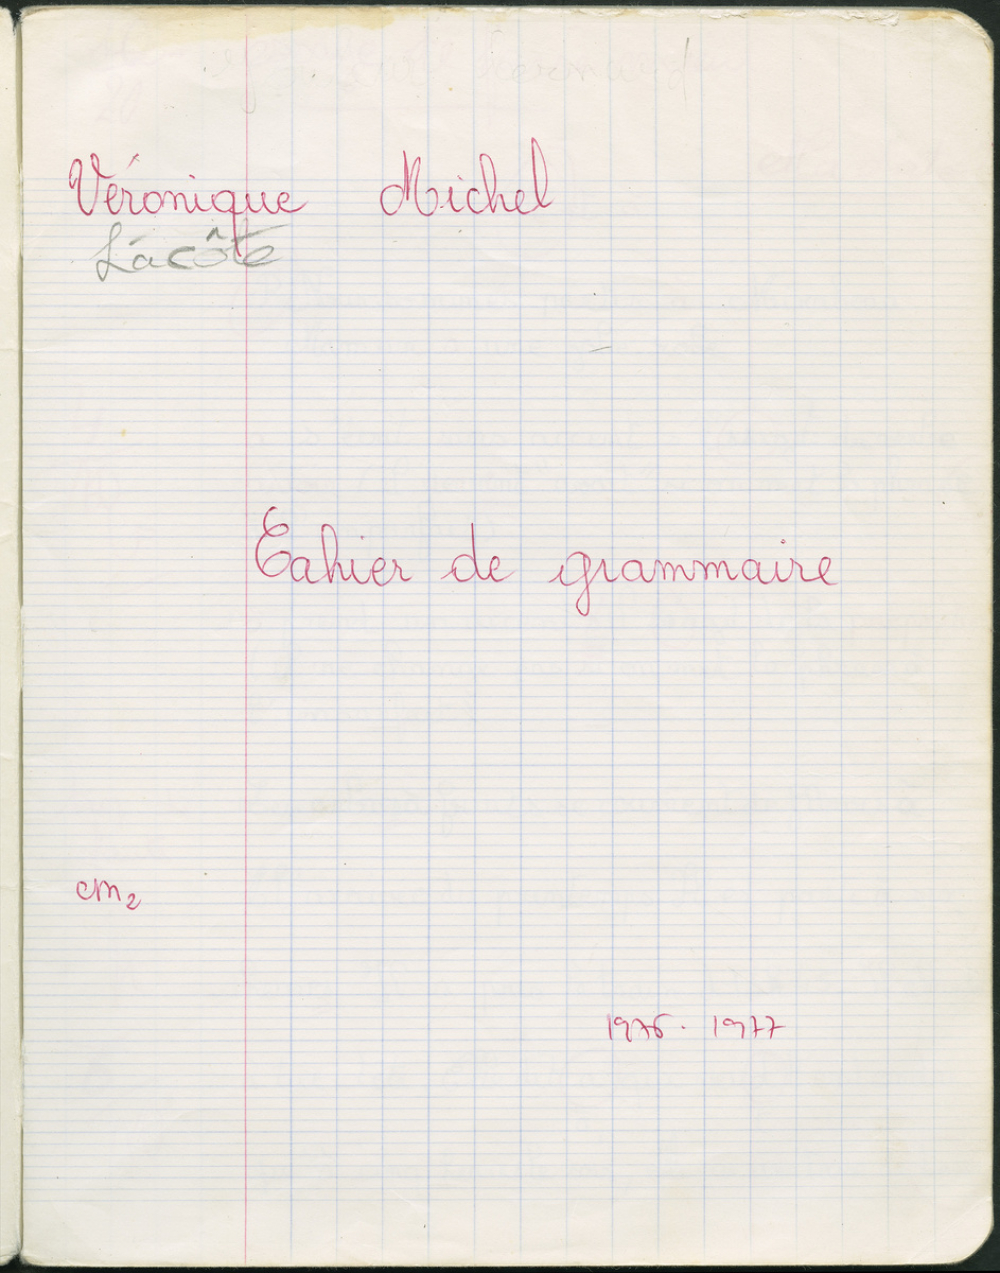 Véronique Michel
Lacôte
Cahier de grammaire
cm2
1976. 1977